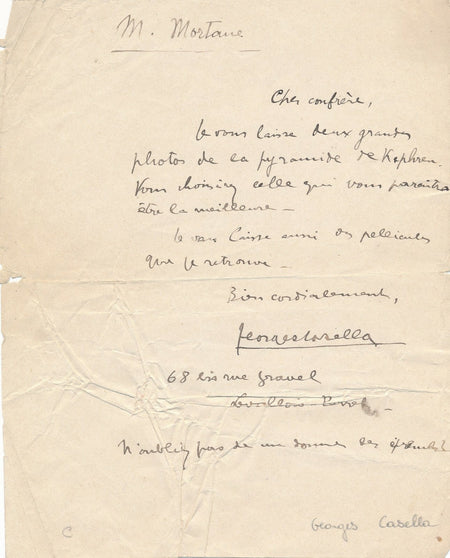 M. Mortane
Cher confrère,
Je vous laisse deux grandes
photos de la pyramide de Kephren.
Vous choisirez celle qui vous paraîtra
être la meilleure —
Je vous laisse aussi des pellicules
que je retrouve —
Bien cordialement,
Georges Casella
68 bis rue Gravel
Levallois-Perret
N'oubliez pas de me donner des
C
Georges Casella